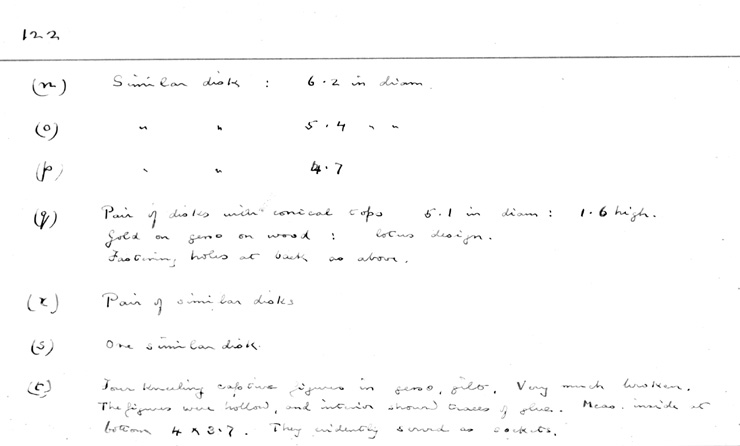 122
(n) Similar disk : 6.2 in diam.
(o) " " 5.4 " "
(p) " " 4.7
(q) Pair of disks with conical tops 5.1 in diam : 1.6 high.
Gold on gesso on wood : lotus design.
Fastening holes at back as above.
(r) Pair of similar disks
(s) One similar disk.
(t) Four kneeling captive figures in gesso, gilt. Very much broken.
The figures were hollow, and interior showed traces of glue. Meas. inside at
bottom 4 x 3.7. They evidently served as sockets.